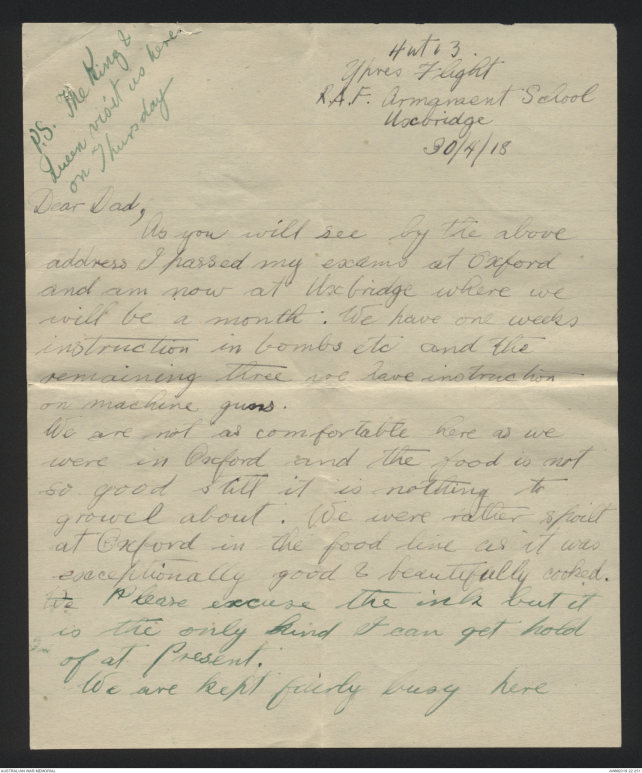 P.S. The King &
Queen visit us here
on Thursday
Hut 63.
Ypres Flight
R.A.F. Armament School
Uxbridge
30/4/18
Dear Dad,
As you will see by the above
address I passed my exams at Oxford
and am now at Uxbridge where we
will be a month. We have one weeks
instruction in bombs etc and the
remaining three we have instruction
on machine guns.
We are not as comfortable here as we
were in Oxford and the food is not
so good still it is nothing to
growl about. We were rather spoilt
at Oxford in the food line as it was
exceptionally good & beautifully cooked.
We Please excuse the ink but it
is the only kind I can get hold
of at Present.
We are kept fairly busy here
AUSTRALIAN WAR MEMORIAL